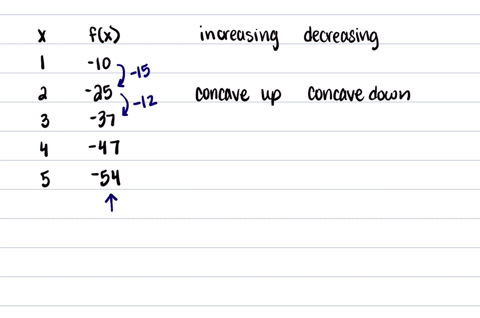 x f(x) increasing decreasing
1 -10
-15
2 -25 concave up concave down
-12
3 -37
4 -47
5 -54